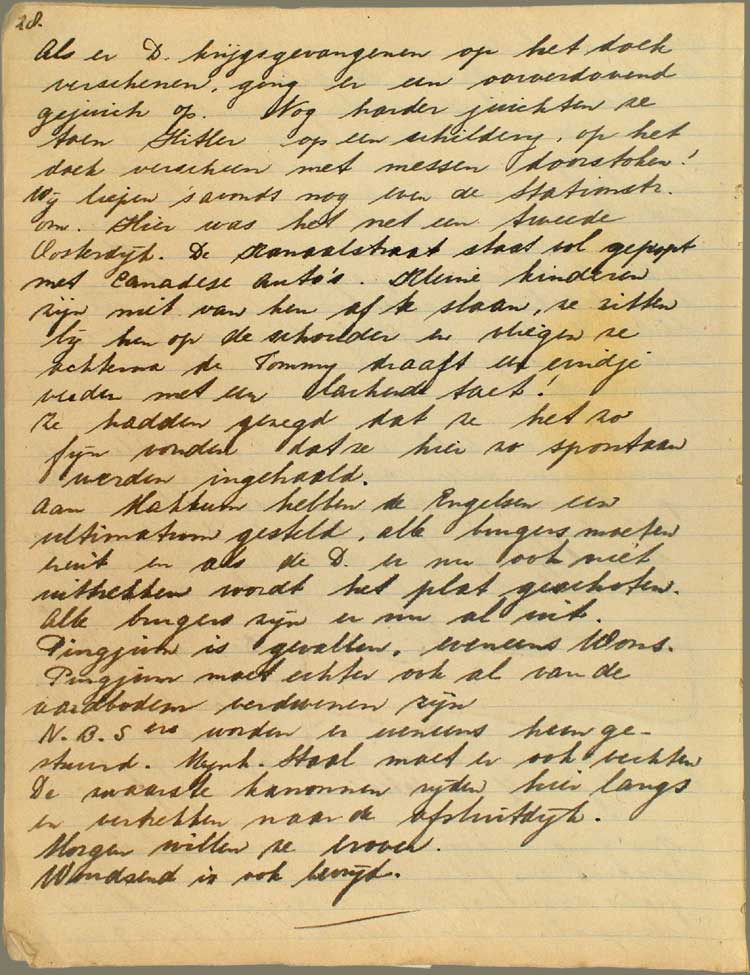 28.
Als er D. krijgsgevangenen op het doek
verschenen, ging er een oorverdovend
gejuich op. Nog harder juichten ze
toen Hitler op een schildery, op het
doek verscheen met messen doorstoken!
Wij liepen 's avonds nog even de Stationstr.
om. Hier was het net een tweede
Oosterdijk. De Kanaalstraat staat vol gepropt
met Canadese auto's. Kleine kinderen
zijn niet van hen af te slaan, ze zitten
bij hen op de schouder en vliegen ze
achterna de Tommy draaft een eindje
verder met een lachend toet!
Ze hadden gezegd dat ze het zo
fijn vonden dat ze hier zo spontaan
werden ingehaald.
Aan Makkum hebben de Engelsen een
ultimatum gesteld, alle burgers moeten
eruit en als de D. er nu ook niet
uittrekken wordt het plat geschoten.
Alle burgers zijn er nu al uit.
Pingjum is gevallen, eveneens Wons.
Pingjum moet echter ook al van de
aardbodem verdwenen zijn
N.B.S ers worden er eveneens heen ge-
stuurd. Mynh. Staal moet er ook vechten
De zwaarste kanonnen rijden hier langs
en vertrekken naar de afsluitdijk.
Morgen willen ze erover.
Woudsend is ook bevrijd.